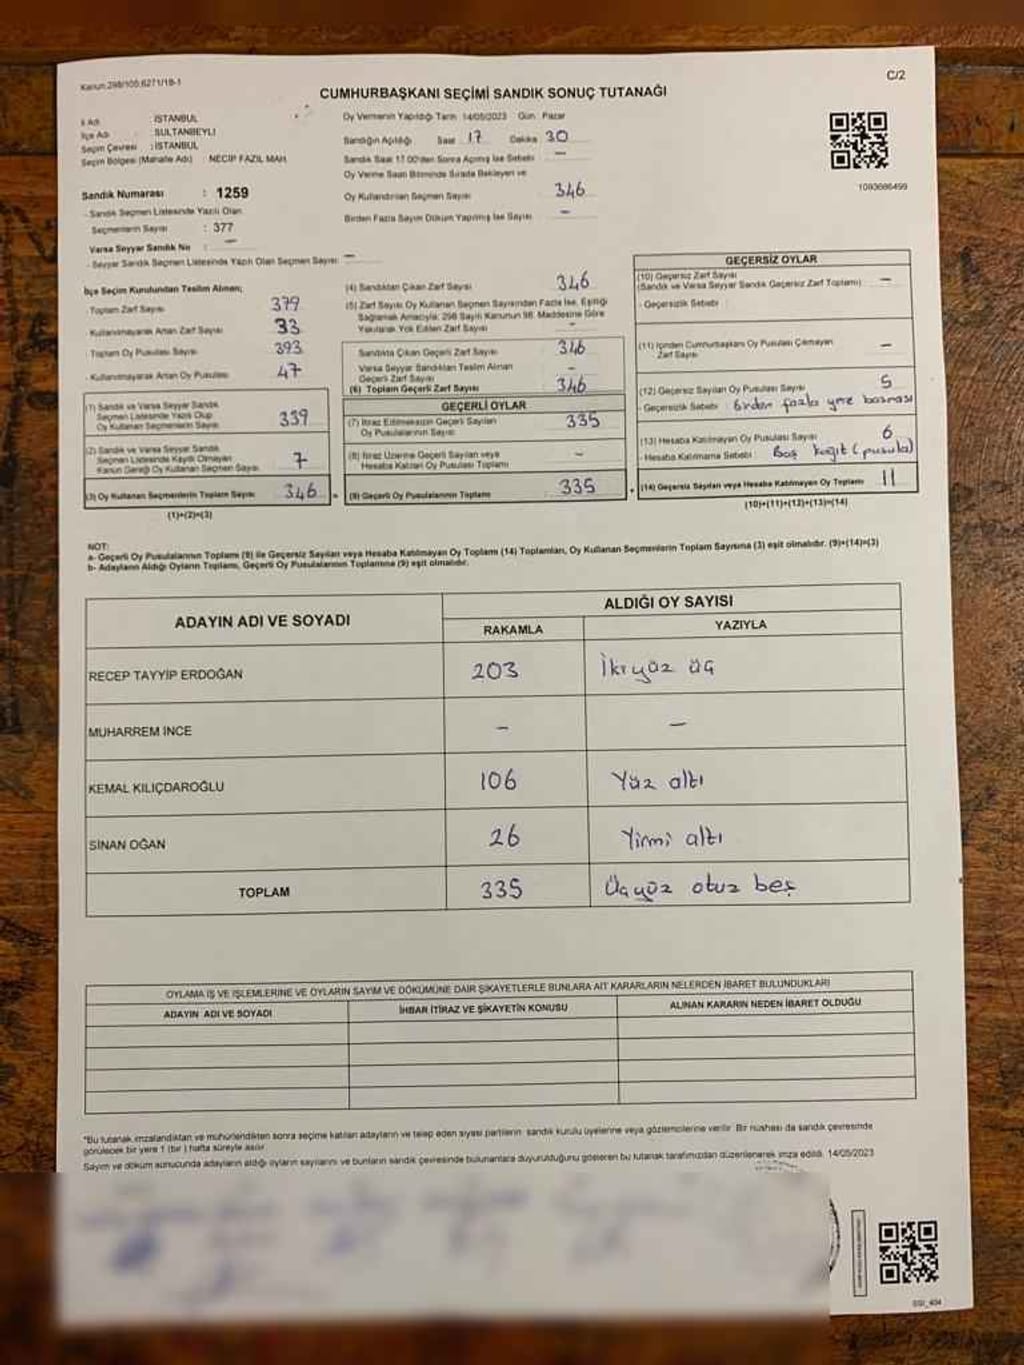 Kanun:298/105;6271/18-1
C/2
CUMHURBAŞKANI SEÇİMİ SANDIK SONUÇ TUTANAĞI
İl Adı : İSTANBUL
İlçe Adı : SULTANBEYLİ
Seçim Çevresi : İSTANBUL
Seçim Bölgesi (Mahalle Adı) : NECİP FAZIL MAH.
Sandık Numarası : 1259
- Sandık Seçmen Listesinde Yazılı Olan
Seçmenlerin Sayısı : 377
Varsa Seyyar Sandık No : —
- Seyyar Sandık Seçmen Listesinde Yazılı Olan Seçmen Sayısı : —
Oy Vermenin Yapıldığı Tarih 14/05/2023 Gün Pazar
Sandığın Açıldığı Saat 17 Dakika 30
Sandık Saat 17.00'den Sonra Açılmış İse Sebebi —
Oy Verme Saati Bitiminde Sırada Bekleyen ve
Oy Kullandırılan Seçmen Sayısı 346
Birden Fazla Sayım Döküm Yapılmış İse Sayısı –
1093686499
İlçe Seçim Kurulundan Teslim Alınan;
- Toplam Zarf Sayısı 379
- Kullanılmayarak Artan Zarf Sayısı 33
- Toplam Oy Pusulası Sayısı 393
- Kullanılmayarak Artan Oy Pusulası 47
(1) Sandık ve Varsa Seyyar Sandık
Seçmen Listesinde Yazılı Olup
Oy Kullanan Seçmenlerin Sayısı 339
(2) Sandık ve Varsa Seyyar Sandık
Seçmen Listesinde Kayıtlı Olmayan
Kanun Gereği Oy Kullanan Seçmen Sayısı 7
(3) Oy Kullanan Seçmenlerin Toplam Sayısı 346
(1)+(2)=(3)
(4) Sandıktan Çıkan Zarf Sayısı 346
(5) Zarf Sayısı Oy Kullanan Seçmen Sayısından Fazla İse, Eşitliği
Sağlamak Amacıyla; 298 Sayılı Kanunun 98. Maddesine Göre
Yakılarak Yok Edilen Zarf Sayısı –
Sandıkta Çıkan Geçerli Zarf Sayısı 346
Varsa Seyyar Sandıktan Teslim Alınan
Geçerli Zarf Sayısı –
(6) Toplam Geçerli Zarf Sayısı 346
GEÇERLİ OYLAR
(7) İtiraz Edilmeksizin Geçerli Sayılan
Oy Pusulalarının Sayısı 335
(8) İtiraz Üzerine Geçerli Sayılan veya
Hesaba Katılan Oy Pusulası Toplamı –
= (9) Geçerli Oy Pusulalarının Toplamı 335
GEÇERSİZ OYLAR
(10) Geçersiz Zarf Sayısı
(Sandık ve Varsa Seyyar Sandık Geçersiz Zarf Toplamı) –
- Geçersizlik Sebebi :
(11) İçinden Cumhurbaşkanı Oy Pusulası Çıkmayan
Zarf Sayısı –
(12) Geçersiz Sayılan Oy Pusulası Sayısı 5
- Geçersizlik Sebebi : birden fazla yere basması
(13) Hesaba Katılmayan Oy Pusulası Sayısı 6
- Hesaba Katılmama Sebebi : Boş kağıt (pusula)
+ (14) Geçersiz Sayılan veya Hesaba Katılmayan Oy Toplamı 11
(10)+(11)+(12)+(13)=(14)
NOT:
a- Geçerli Oy Pusulalarının Toplamı (9) ile Geçersiz Sayılan veya Hesaba Katılmayan Oy Toplamı (14) Toplamları, Oy Kullanan Seçmenlerin Toplam Sayısına (3) eşit olmalıdır. (9)+(14)=(3)
b- Adayların Aldığı Oyların Toplamı, Geçerli Oy Pusulalarının Toplamına (9) eşit olmalıdır.
ADAYIN ADI VE SOYADI
ALDIĞI OY SAYISI
RAKAMLA YAZIYLA
RECEP TAYYİP ERDOĞAN 203 İkiyüz üç
MUHARREM İNCE – –
KEMAL KILIÇDAROĞLU 106 Yüz altı
SİNAN OĞAN 26 Yirmi altı
TOPLAM 335 Üçyüz otuz beş
OYLAMA İŞ VE İŞLEMLERİNE VE OYLARIN SAYIM VE DÖKÜMÜNE DAİR ŞİKAYETLERLE BUNLARA AİT KARARLARIN NELERDEN İBARET BULUNDUKLARI
ADAYIN ADI VE SOYADI İHBAR İTİRAZ VE ŞİKAYETİN KONUSU ALINAN KARARIN NEDEN İBARET OLDUĞU
*Bu tutanak imzalandıktan ve mühürlendikten sonra seçime katılan adayların ve talep eden siyasi partilerin sandık kurulu üyelerine veya gözlemcilerine verilir. Bir nüshası da sandık çevresinde
görülecek bir yere 1 (bir) hafta süreyle asılır.
Sayım ve döküm sonucunda adayların aldığı oyların sayılarını ve bunların sandık çevresinde bulunanlara duyurulduğunu gösteren bu tutanak tarafımızdan düzenlenerek imza edildi. 14/05/2023